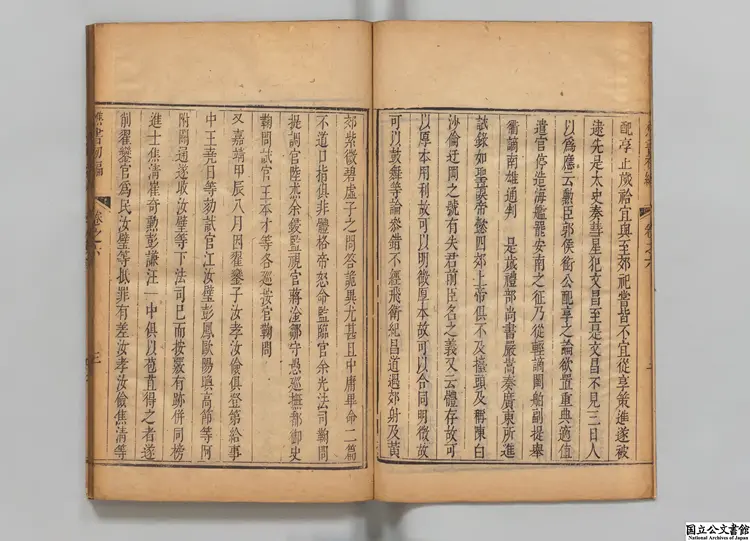 配享止歲祫宜與至郊祀嘗皆不宜從享策進遂被
逮先是太史奏彗星犯文昌至是文昌不見三日人
以為應云勳臣郭侯銜公配享之論欲置重典適值
遣官停造海艦罷安南之征乃從輕謫閩舶副提舉
衢謫南雄通判 是歲禮部尚書嚴嵩奏廣東所進
試錄如聖謨帝懿四郊上帝俱不及擡頭及稱陳白
沙倫迂岡之號有失君前臣名之義又云體存故可
以厚本用利故可以明微厚本故可以合同明微故
可以鼓舞等論參錯不經飛衛紀昌道過郊射及黄
郊紫微碧虛子之問答詭異尤甚且中庸畢命二篇
不道口指俱非體格帝怒命監臨官余光法司鞫問
提調官陸杰余鍰監視官蔣淦鄒守愚巡撫都御史
鞫問試官王本才等各巡按官鞫問
又嘉靖甲辰八月因翟鑾子汝孝汝儉俱登第給事
中王堯日等劾試官江汝璧彭鳳歐陽㬂高節等阿
附關通遂收汝璧等下法司已而按覈有跡併同榜
進士焦清崔奇勲彭謙汪一中俱以苞苴得之者遂
削翟鑾官為民汝璧等抵罪有差汝孝汝儉焦清等
樵書初編
卷之六
三
樵書初編
卷之六
国立公文書館
National Archives of Japan